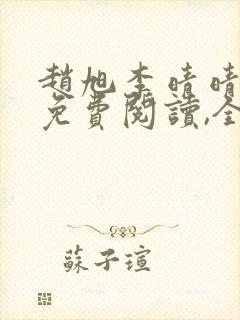 趙旭李晴晴
免費閱讀,全
蘇子瑄